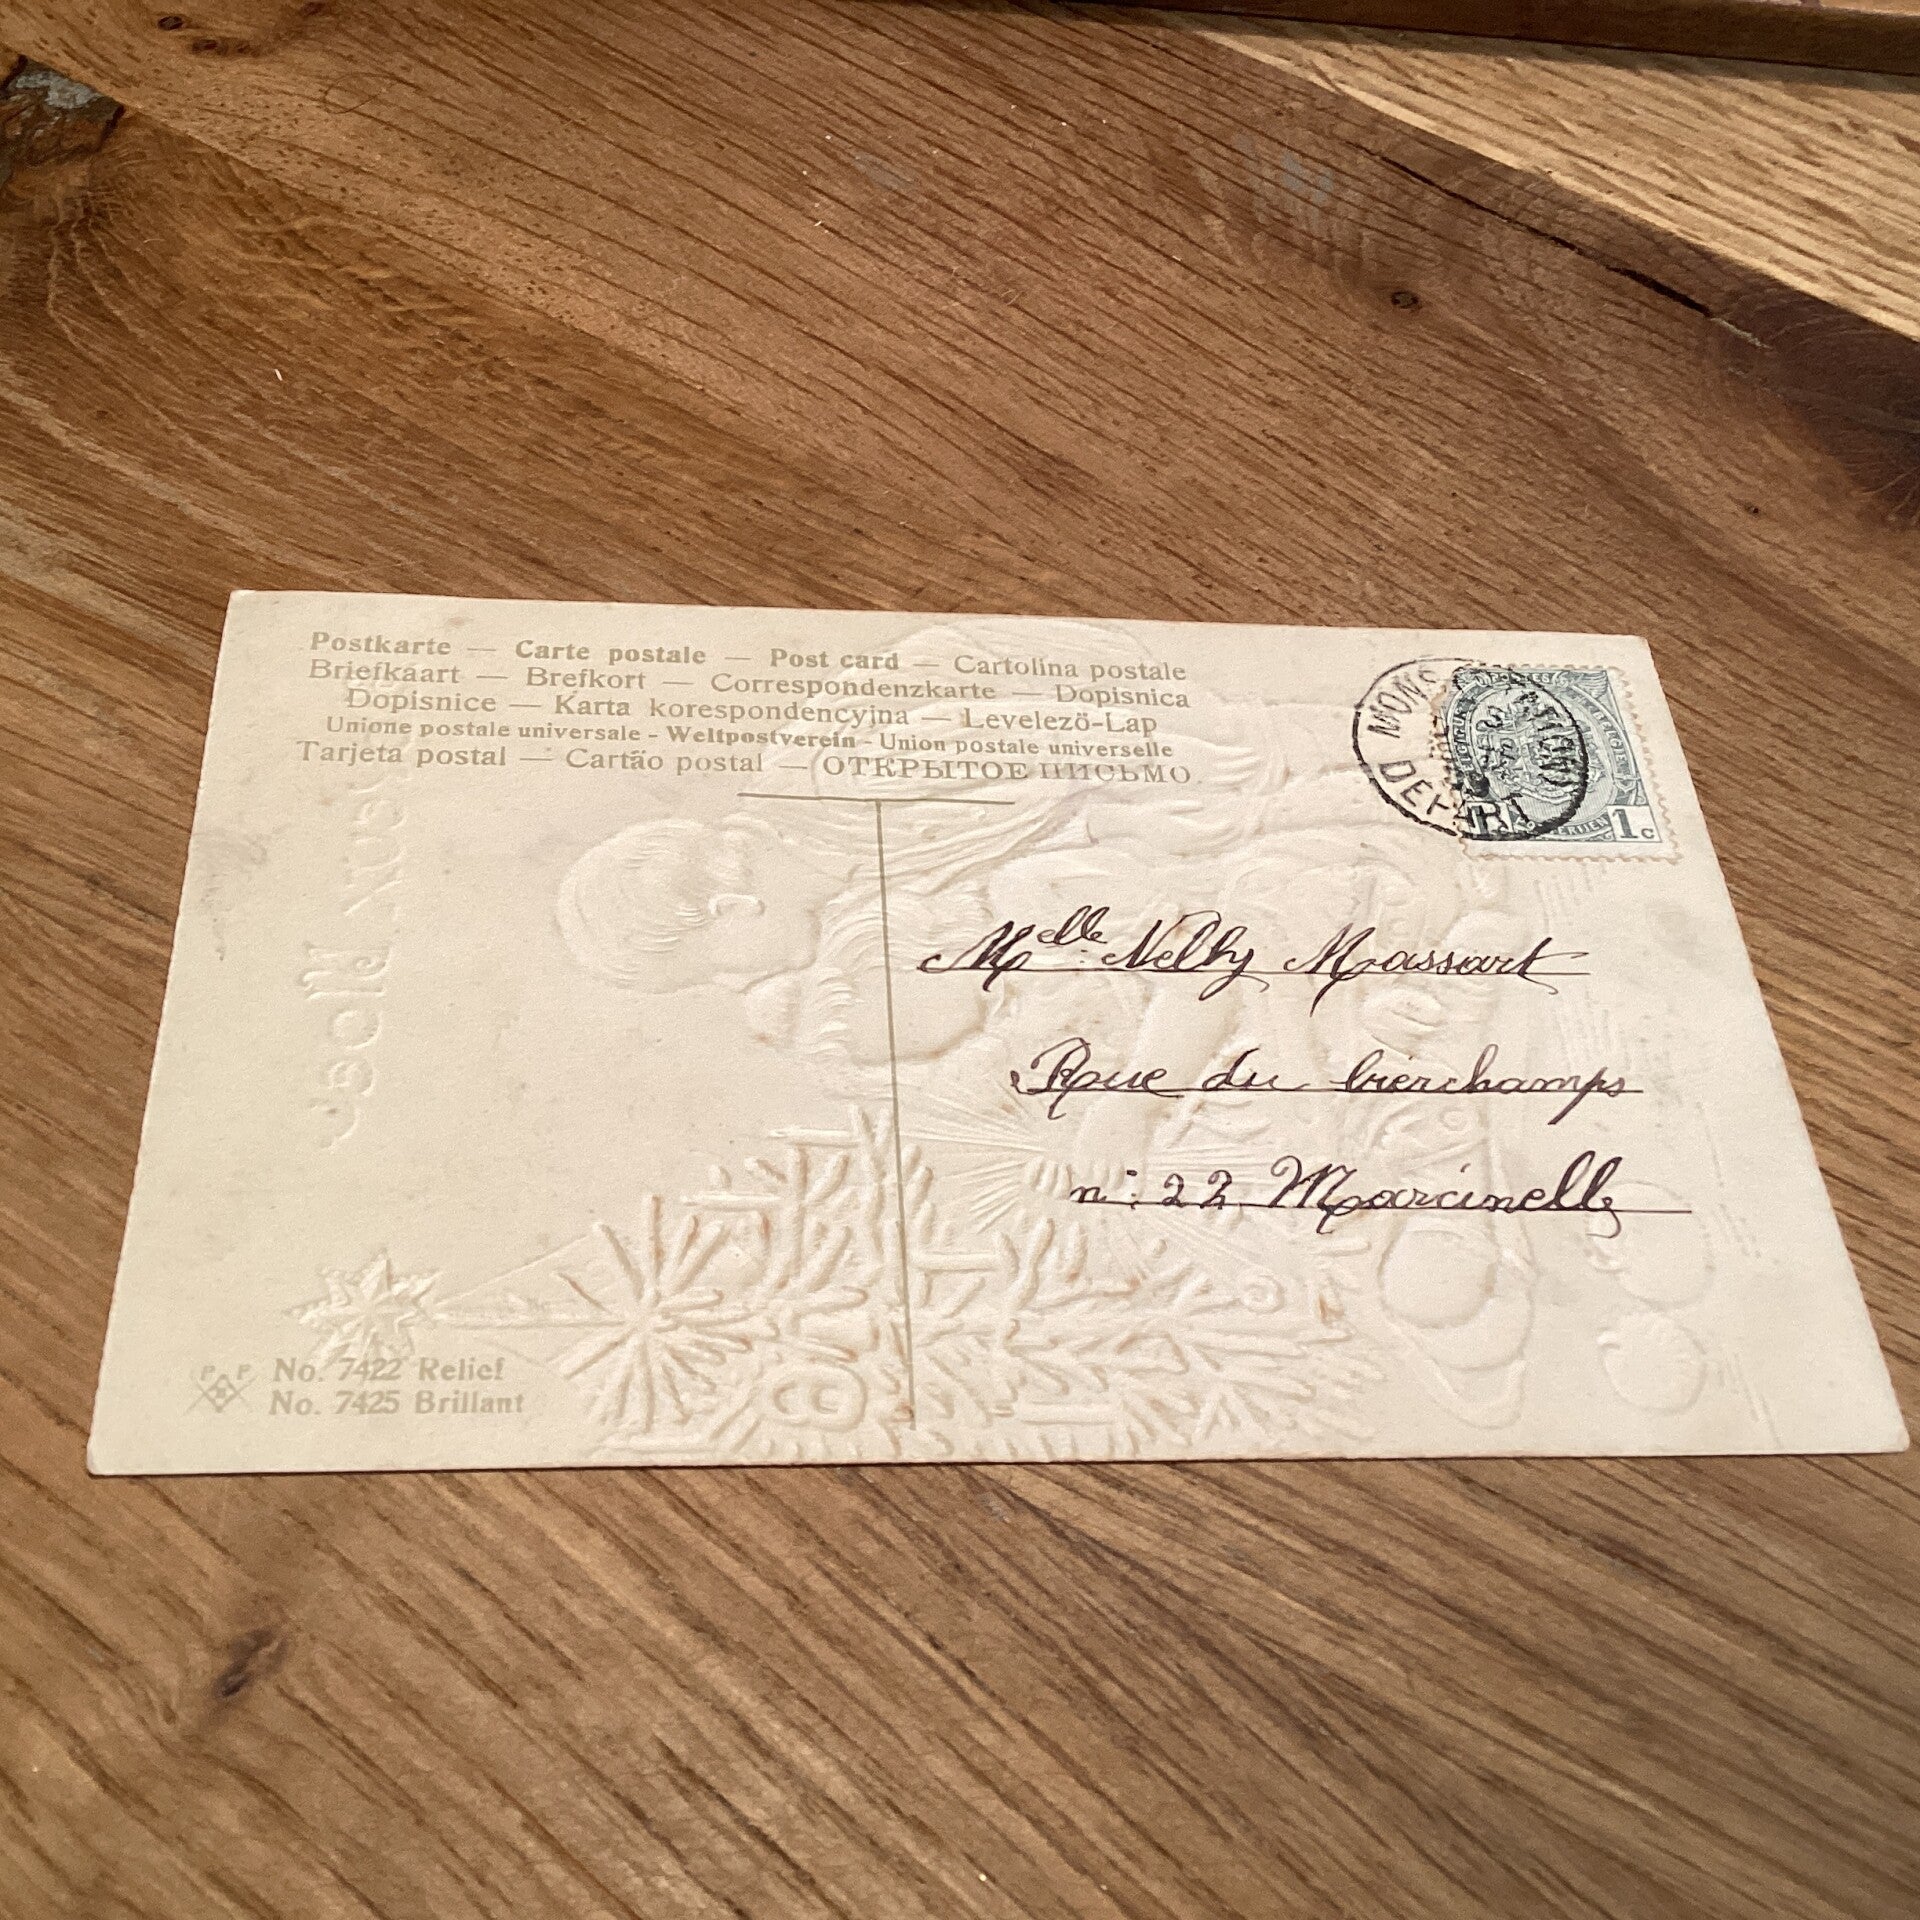 Postkarte — Carte postale — Post card — Cartolina postale
Briefkaart — Brefkort — Correspondenzkarte — Dopisnica
Dopisnice — Karta korespondencyjna — Levelező-Lap
Unione postale universale - Weltpostverein - Union postale universelle
Tarjeta postal — Cartão postal — ОТКРЫТОЕ ПИСЬМО
MONS
1c
Melle Nelly Massart
Rue du bierchamps
n° 22 Marcinelle
P P
No. 7422 Relief
No. 7425 Brillant